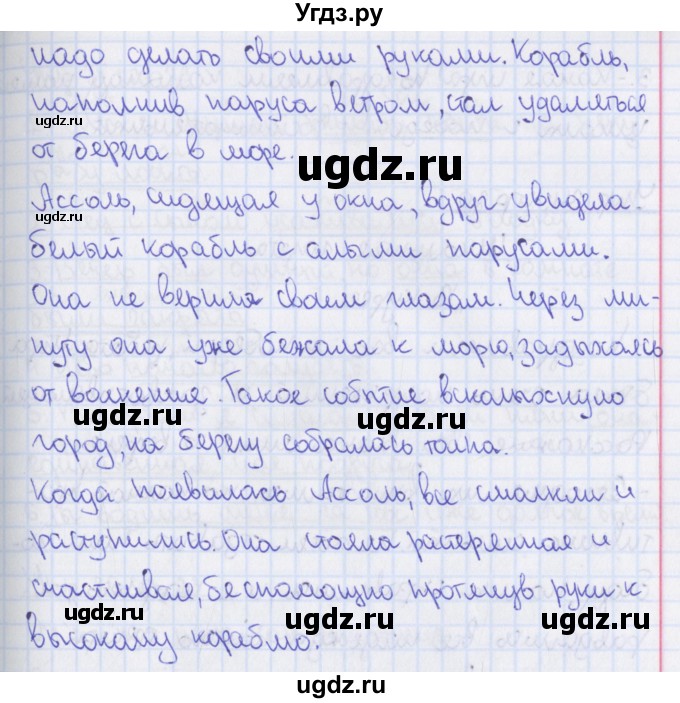 Угдз.ру
надо делать своими руками. Корабль,
наполнив паруса ветром, стал удаляться
от берега в море.
Ассоль, сидящая у окна, вдруг увидела
белый корабль с алыми парусами.
Она не верила своим глазам. Через ми-
нуту она уже бежала к морю, задыхаясь
от волнения. Такое событие всколыхнуло
город, на берегу собралась толпа.
Когда появилась Ассоль, все смолкли и
расступились. Она стояла растерянная и
счастливая, беспомощно протянув руки к
высокому кораблю.
ugdz.ru
ugdz.ru
ugdz.ru
ugdz.ru
ugdz.ru
ugdz.ru
ugdz.ru
ugdz.ru
ugdz.ru
ugdz.ru
ugdz.ru